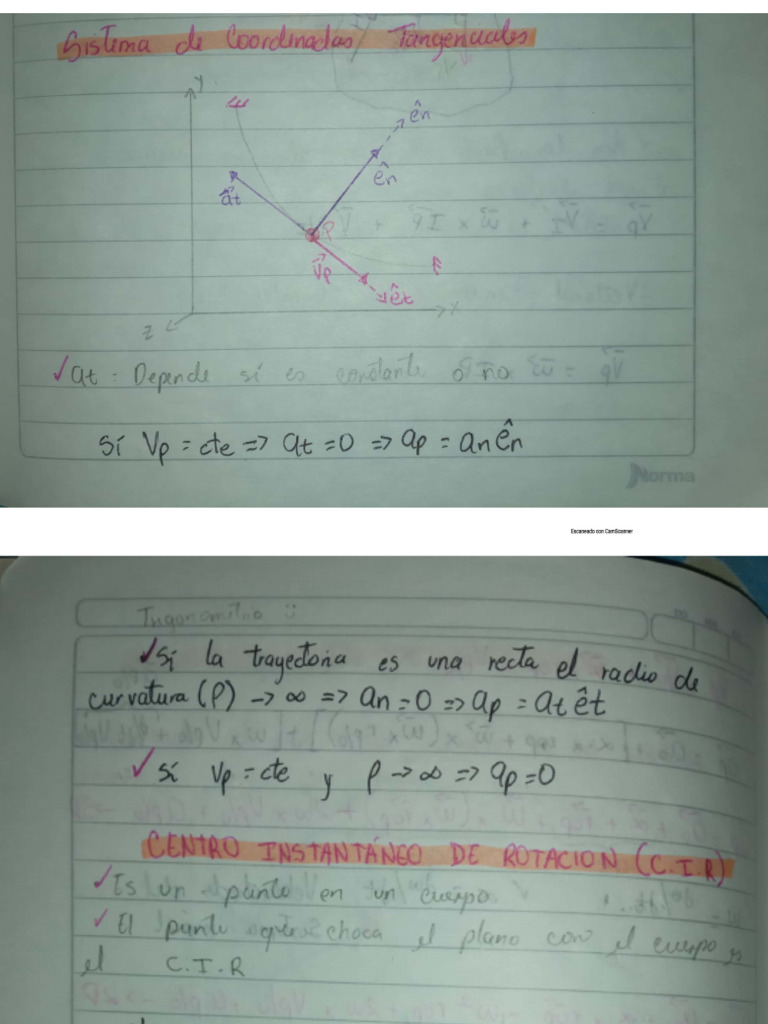 Sistema de Coordinadas Tangenciales
Y
ên
ên
at
P
Vp
êt
X
Z
✓ at : Depende sí es constante o no
Sí Vp = cte => at = 0 => ap = an ên
Norma
Escaneado con CamScanner
✓ Sí la trayectoria es una recta el radio de
curvatura (ρ) → ∞ => an = 0 => ap = at êt
✓ Sí Vp = cte y ρ → ∞ => ap = 0
CENTRO INSTANTÁNEO DE ROTACION (C.I.R)
✓ Es un punto en un cuerpo
✓ El punto choca el plano con el cuerpo es
el C.I.R